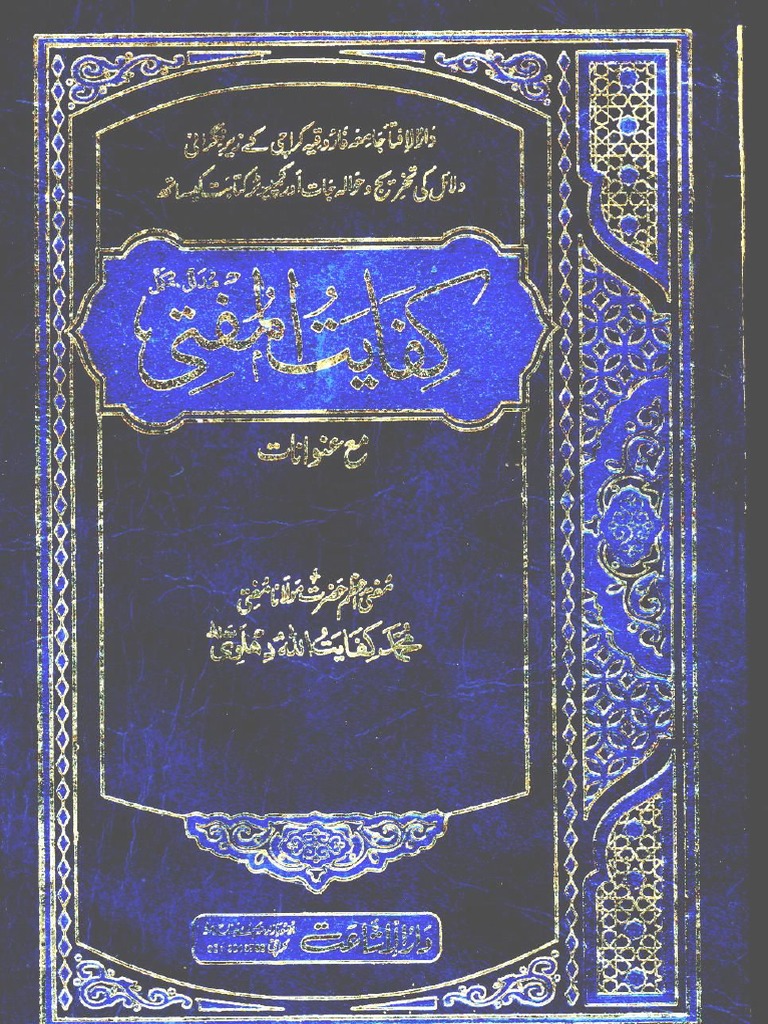 دارالافتا جامعہ فاروقیہ کراچی کے زیر نگرانی
دلائل کی تخریج و حوالہ جات اور کمپیوٹر کتابت کیساتھ
کفایت المفتی
مدلل مکمل
مع عنوانات
مفتی اعظم حضرت مولانا مفتی
محمد کفایت اللہ دہلوی
دارالاشاعت
کراچی